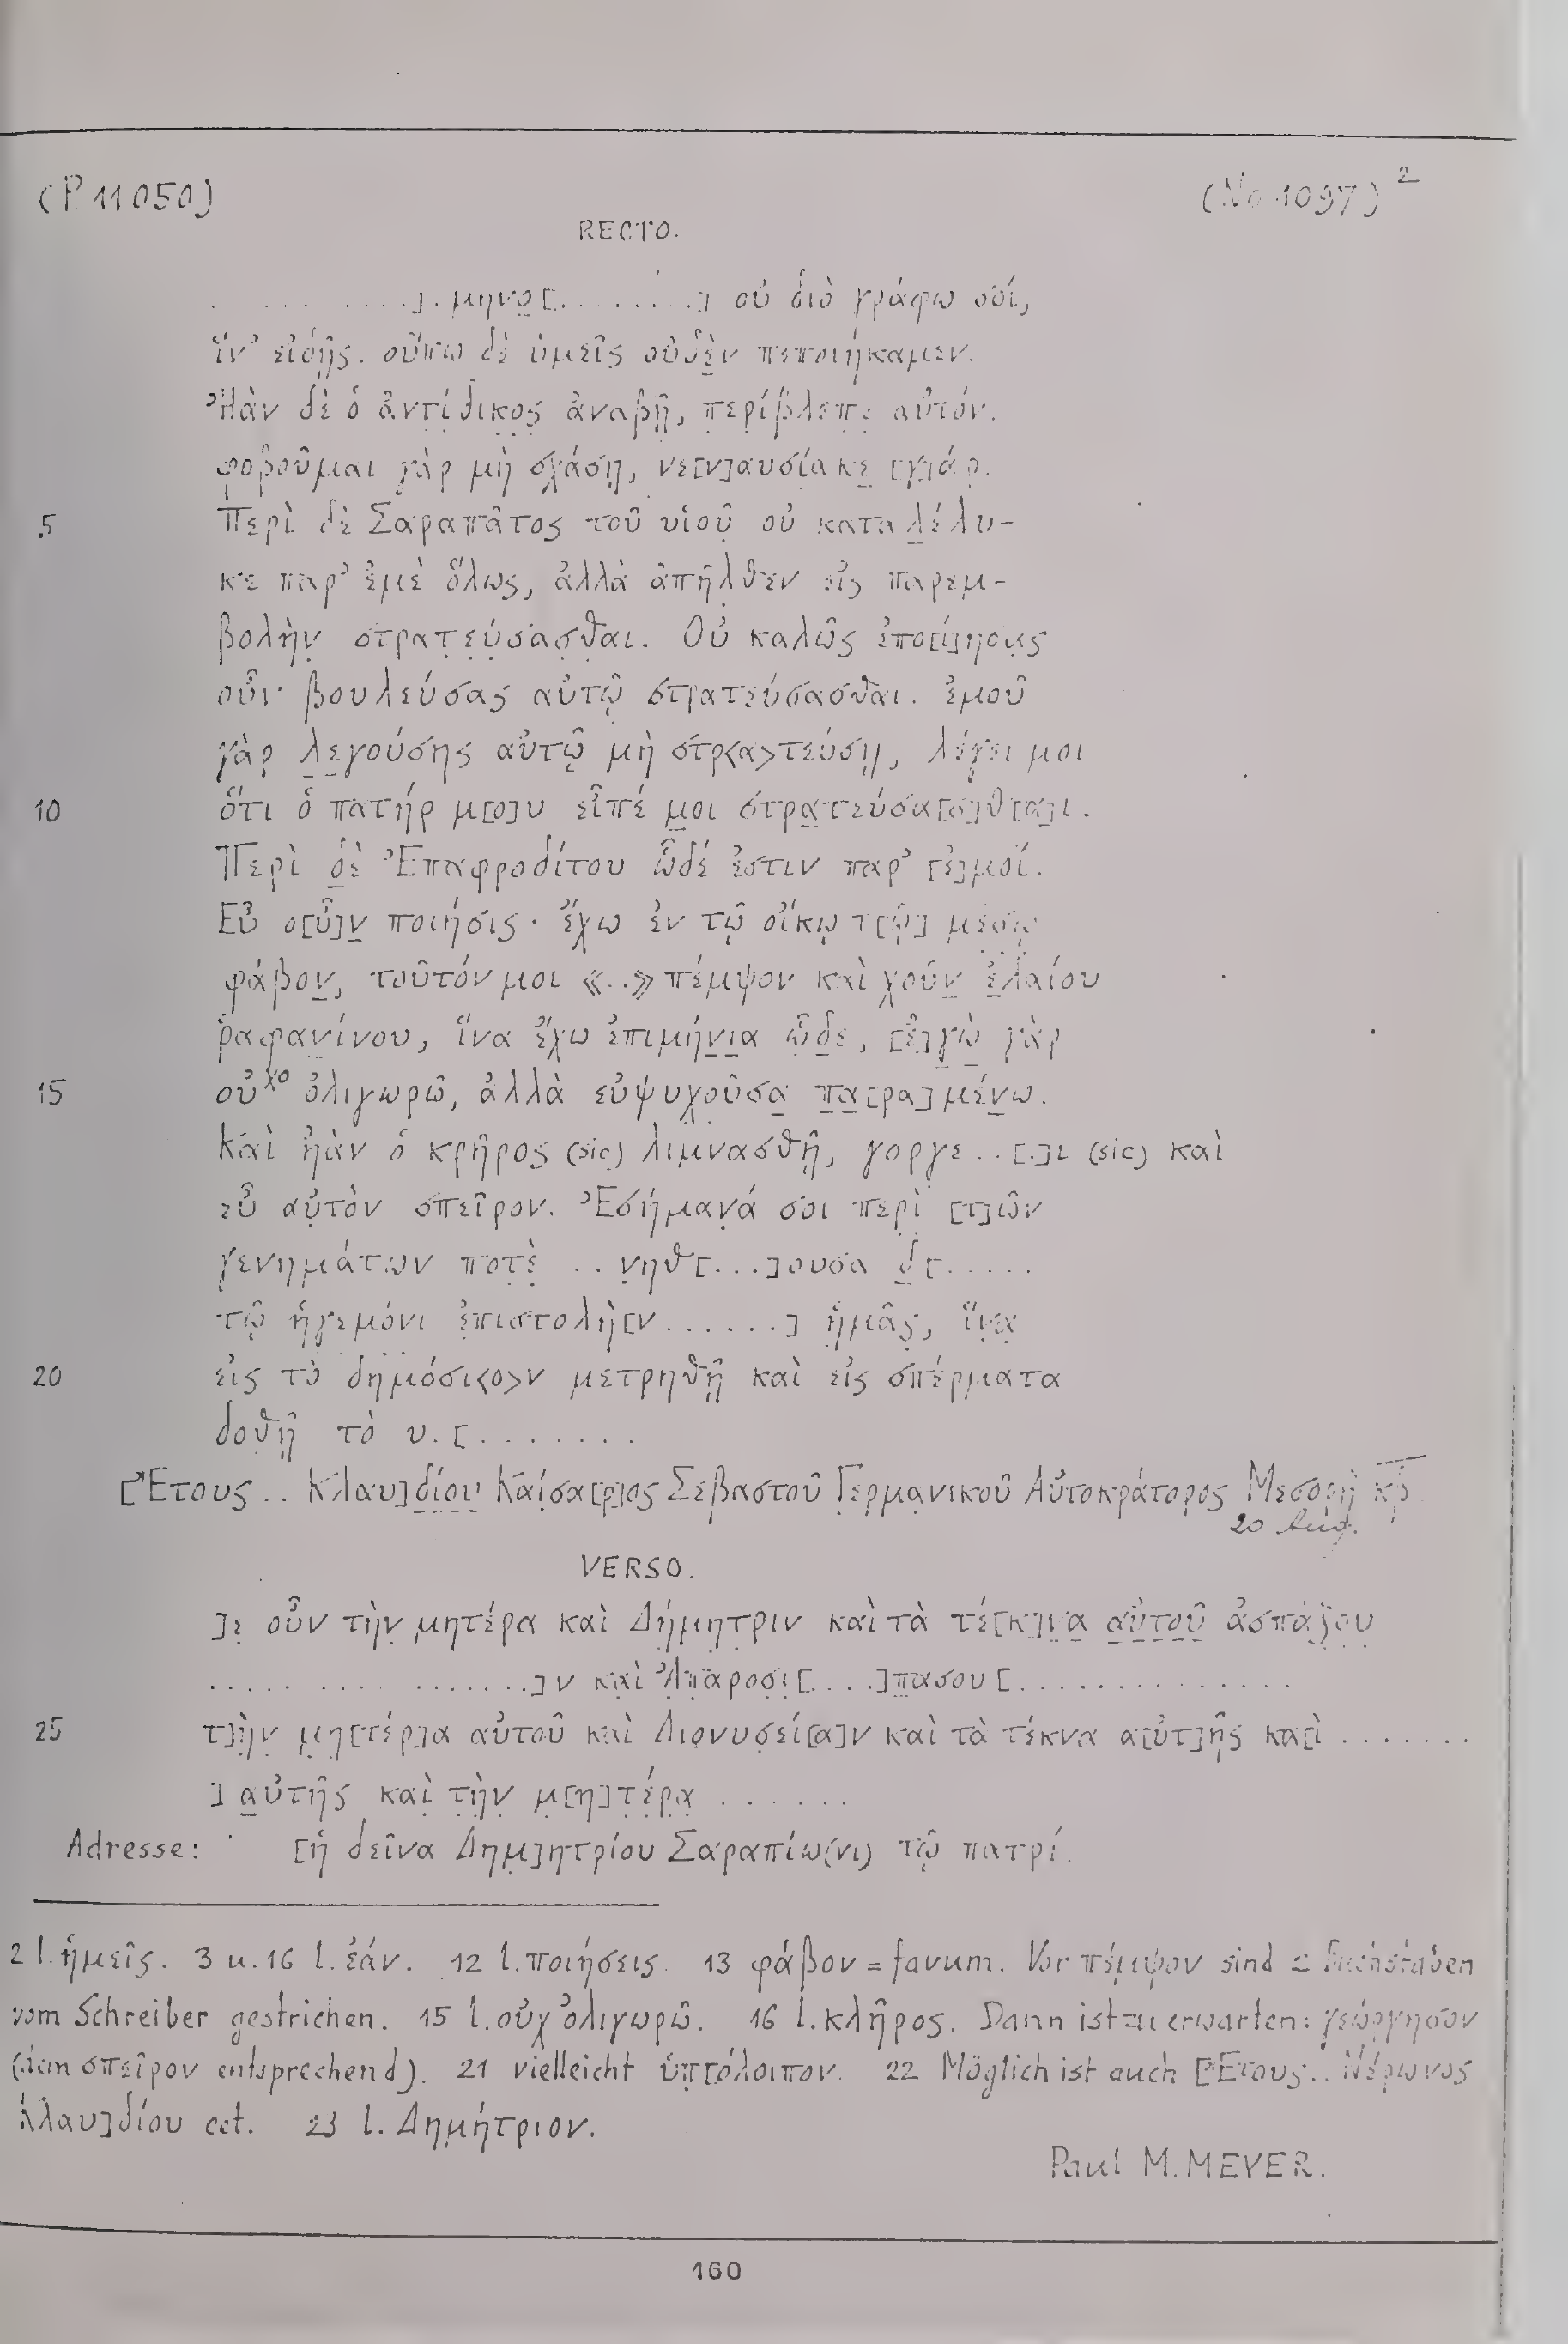 (P. 11050)
(No 1097) 2
RECTO.
. . . . . . . . . . . ]. μηνο̣[. . . . . . . .] οὐ διὸ γράφω σοί,
ἵν' εἰδῇς. οὔπω δὲ ὑμεῖς οὐδὲν πεποιήκαμεν.
Ἠὰν δὲ ὁ ἀντίδικος ἀναβῇ, περίβλεπε αὐτόν.
φοβοῦμαι γὰρ μὴ σχάσῃ, νε[ν]αυσίακε [γ]άρ.
5 Περὶ δὲ Σαραπᾶτος τοῦ υἱοῦ οὐ καταλέλυ-
κε παρ' ἐμὲ ὅλως, ἀλλὰ ἀπῆλθεν εἰς παρεμ-
βολὴν στρατεύσασθαι. Οὐ καλῶς ἐπο[ί]ησας
οὖν βουλεύσας αὐτῷ στρατεύσασθαι. ἐμοῦ
γὰρ λεγούσης αὐτῷ μὴ στρ<α>τεύσῃ, λέγει μοι
10 ὅτι ὁ πατήρ μ[ο]υ εἶπέ μοι στρατεύσα[σ]θ[α]ι.
Περὶ δὲ Ἐπαφροδίτου ὧδέ ἐστιν παρ' [ἐ]μοί.
Εὖ ο[ὖ]ν ποιήσις· ἔχω ἐν τῷ οἴκῳ τ[ῷ] μέσῳ
φάβον, τοῦτόν μοι «..» πέμψον καὶ χοῦν ἐλαίου
ῥαφανίνου, ἵνα ἔχω ἐπιμήνια ὧδε, [ἐ]γὼ γὰρ
15 οὐχο ὀλιγωρῶ, ἀλλὰ εὐψυχοῦσα πα[ρα]μένω.
Καὶ ἠὰν ὁ κρῆρος (sic) λιμνασθῇ, γοργε..[.]ι (sic) καὶ
εὖ αὐτὸν σπεῖρον. Ἐσήμανά σοι περὶ [τ]ῶν
γενημάτων ποτὲ ..νηθ[...]ουσα δ[.....
τῷ ἡγεμόνι ἐπιστολὴ[ν......] ἡμᾶς, ἵνα
20 εἰς τὸ δημόσι<ο>ν μετρηθῇ καὶ εἰς σπέρματα
δοθῇ τὸ υ.[.......
[Ἔτους .. Κλαυ]δίου Καίσα[ρ]ος Σεβαστοῦ Γερμανικοῦ Αὐτοκράτορος Μεσορὴ κ̅
20 Aug.
VERSO.
]ε οὖν τὴν μητέρα καὶ Δήμητριν καὶ τὰ τέ[κ]να αὐτοῦ ἀσπάζου
. . . . . . . . . . . . . . . . . .]ν καὶ Ἁπαροσι[....]πασου[. . . . . . . . . . . . . .
25 τ]ὴν μη[τέρ]α αὐτοῦ καὶ Διονυσεί[α]ν καὶ τὰ τέκνα α[ὐτ]ῆς κα[ὶ .......
] αὐτῆς καὶ τὴν μ[η]τέρα ......
Adresse: [ἡ δεῖνα Δημ]ητρίου Σαραπίω(νι) τῷ πατρί.
2 l. ἡμεῖς. 3 u. 16 l. ἐάν. 12 l. ποιήσεις. 13 φάβον = favum. Vor πέμψον sind 2 Buchstaben
vom Schreiber gestrichen. 15 l. οὐχ ὀλιγωρῶ. 16 l. κλῆρος. Dann ist zu erwarten: γεώργησον
(dem σπεῖρον entsprechend). 21 vielleicht ὑπ[όλοιπον. 22 Möglich ist auch [Ἔτους .. Νέρωνος
Κλαυ]δίου cet. 23 l. Δημήτριον.
Paul M. MEYER.
160